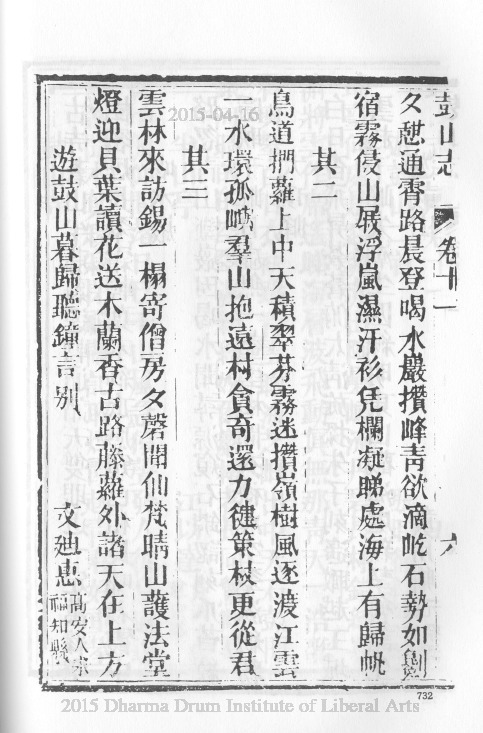 鼓山志 卷十一 六
夕憇通霄路晨登喝水巖攢峰青欲滴屹石勢如劖
宿霧侵山屐浮嵐濕汗衫凭欄凝睇處海上有歸帆
其二
鳥道捫蘿上中天積翠芬霧迷攢嶺樹風逐渡江雲
一水環孤嶼羣山抱遠村貪奇還力健策杖更從君
其三
雲林來訪錫一榻寄僧房夕磬聞仙梵晴山護法堂
燈迎貝葉讀花送木蘭香古路藤蘿外諸天在上方
遊鼓山暮歸聽鐘言別 文廸惠 高安人永
福知縣
732
2015-04-16
2015 Dharma Drum Institute of Liberal Arts